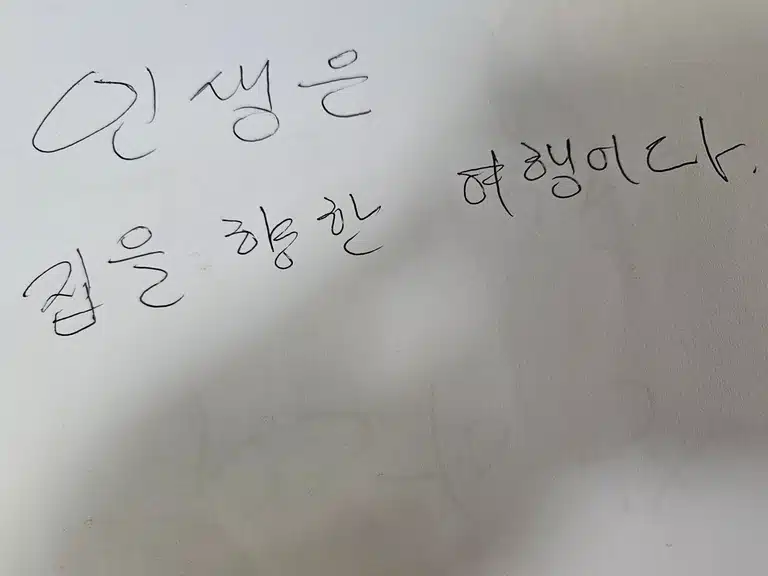 인생은
집을 향한 여행이다.